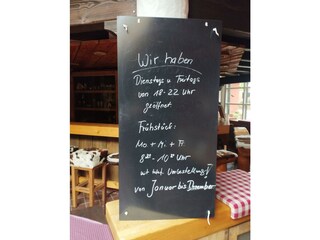 Wir haben
Dienstags u Freitags
von 18-22 Uhr
geöffnet
Frühstück:
Mo + Mi. + Fr
8³⁰-10³⁰ Uhr
mit tel. Vorbestellung!
von Januar bis Dezember